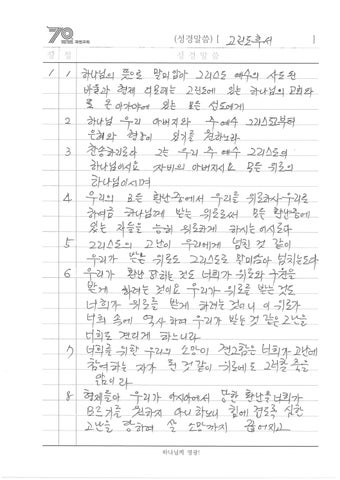 70
(성경말씀) [ 고린도후서 ]
장 절 성 경 말 씀
1 1 하나님의 뜻으로 말미암아 그리스도 예수의 사도 된
바울과 형제 디모데는 고린도에 있는 하나님의 교회와
또 온 아가야에 있는 모든 성도에게
2 하나님 우리 아버지와 주 예수 그리스도로부터
은혜와 평강이 있기를 원하노라
3 찬송하리로다 그는 우리 주 예수 그리스도의
하나님이시요 자비의 아버지시요 모든 위로의
하나님이시며
4 우리의 모든 환난 중에서 우리를 위로하사 우리로
하여금 하나님께 받는 위로로써 모든 환난 중에
있는 자들을 능히 위로하게 하시는 이시로다
5 그리스도의 고난이 우리에게 넘친 것 같이
우리가 받는 위로도 그리스도로 말미암아 넘치는도다
6 우리가 환난 당하는 것도 너희가 위로와 구원을
받게 하려는 것이요 우리가 위로를 받는 것도
너희가 위로를 받게 하려는 것이니 이 위로가
너희 속에 역사하여 우리가 받는 것 같은 고난을
너희도 견디게 하느니라
7 너희를 위한 우리의 소망이 견고함은 너희가 고난에
참여하는 자가 된 것 같이 위로에도 그러할 줄을
앎이라
8 형제들아 우리가 아시아에서 당한 환난을 너희가
모르기를 원하지 아니하노니 힘에 겹도록 심한
고난을 당하여 살 소망까지 끊어지고
하나님께 영광!